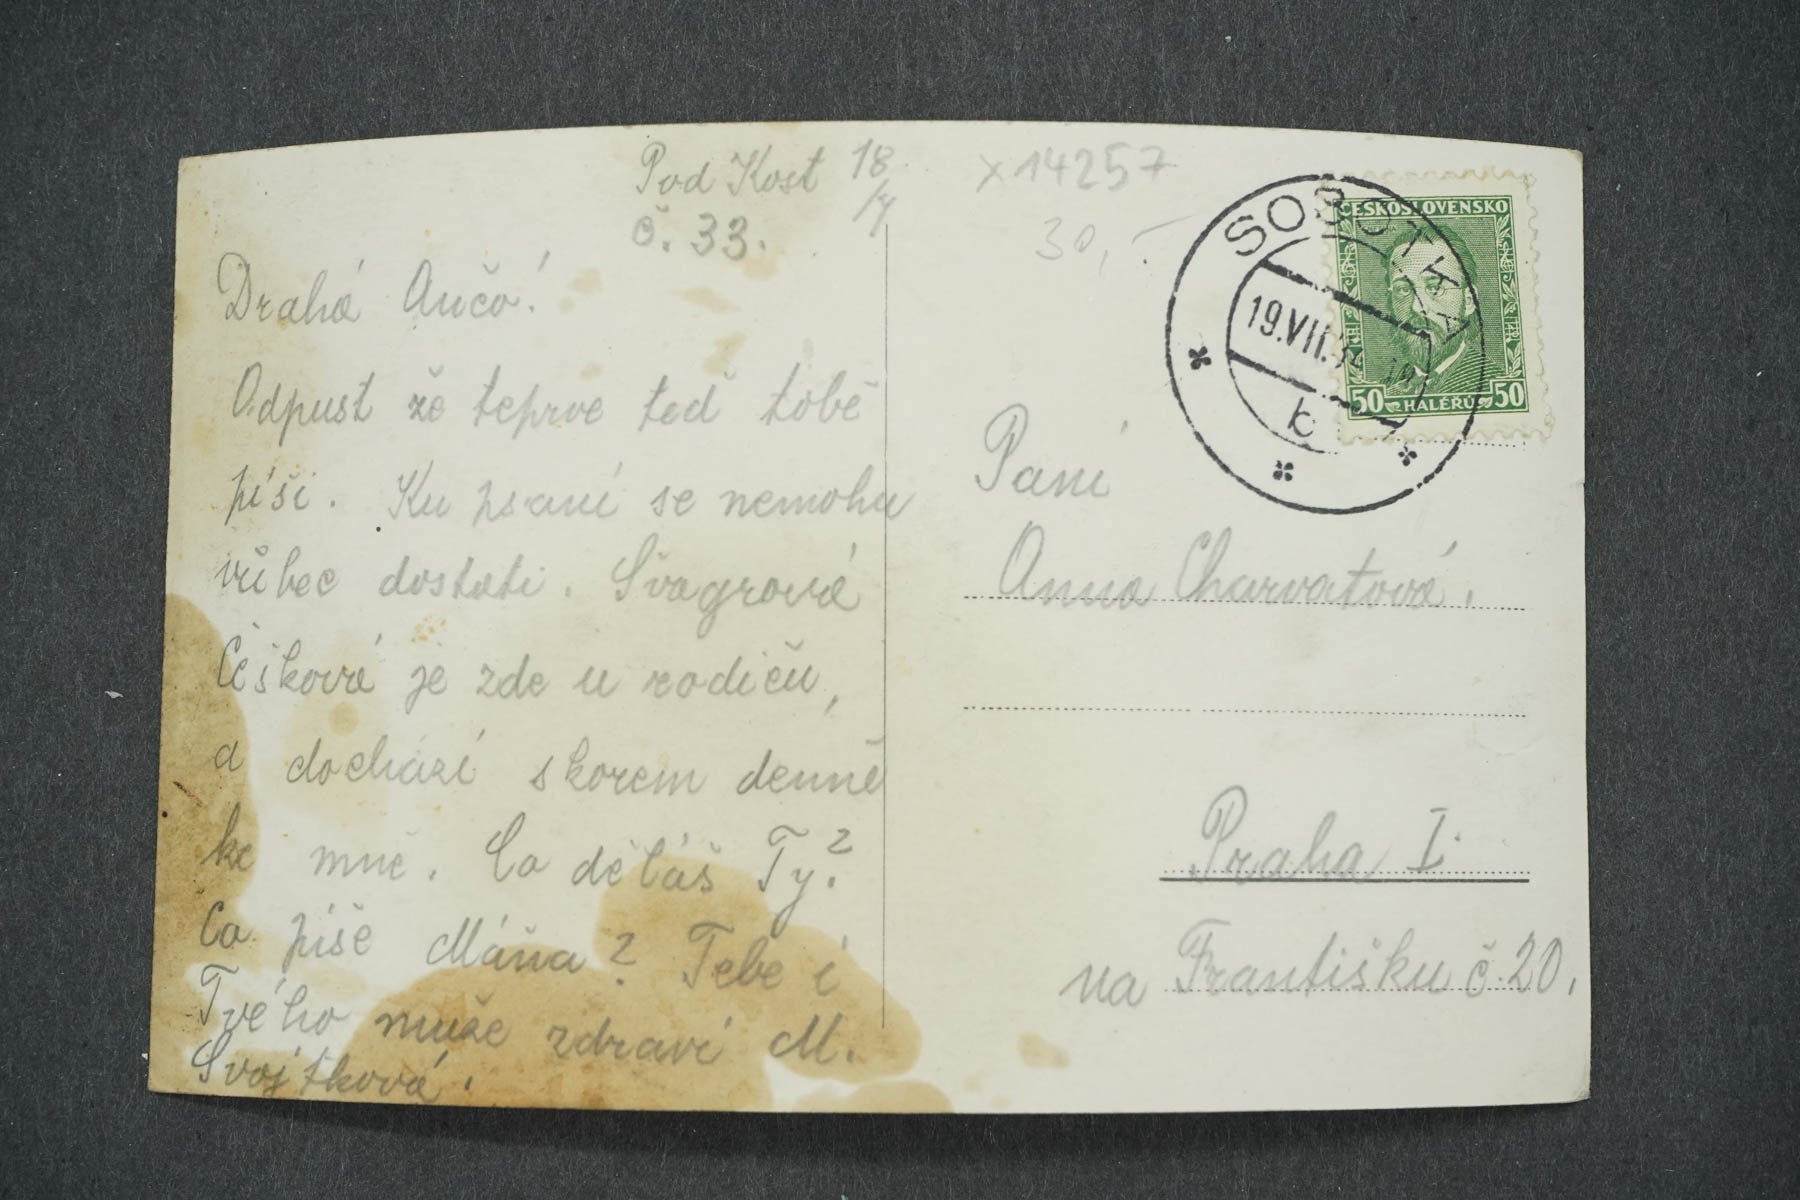 Pod Kost 18/7
č. 33.
Drahá Ančo!
Odpusť že teprve teď tobě
píši. Ku psaní se nemohu
vůbec dostati. Švagrová
Češková je zde u rodičů,
a dochází skorem denně
ke mně. Co děláš Ty?
Co píše Máňa? Tebe i
Tvého muže zdraví M.
Svojtková.
x14257
30,-
SOBOTKA
19.VII.
b
ČESKOSLOVENSKO
50 HALÉŘŮ 50
Paní
Anna Charvatová.
Praha I.
na Františku č. 20.